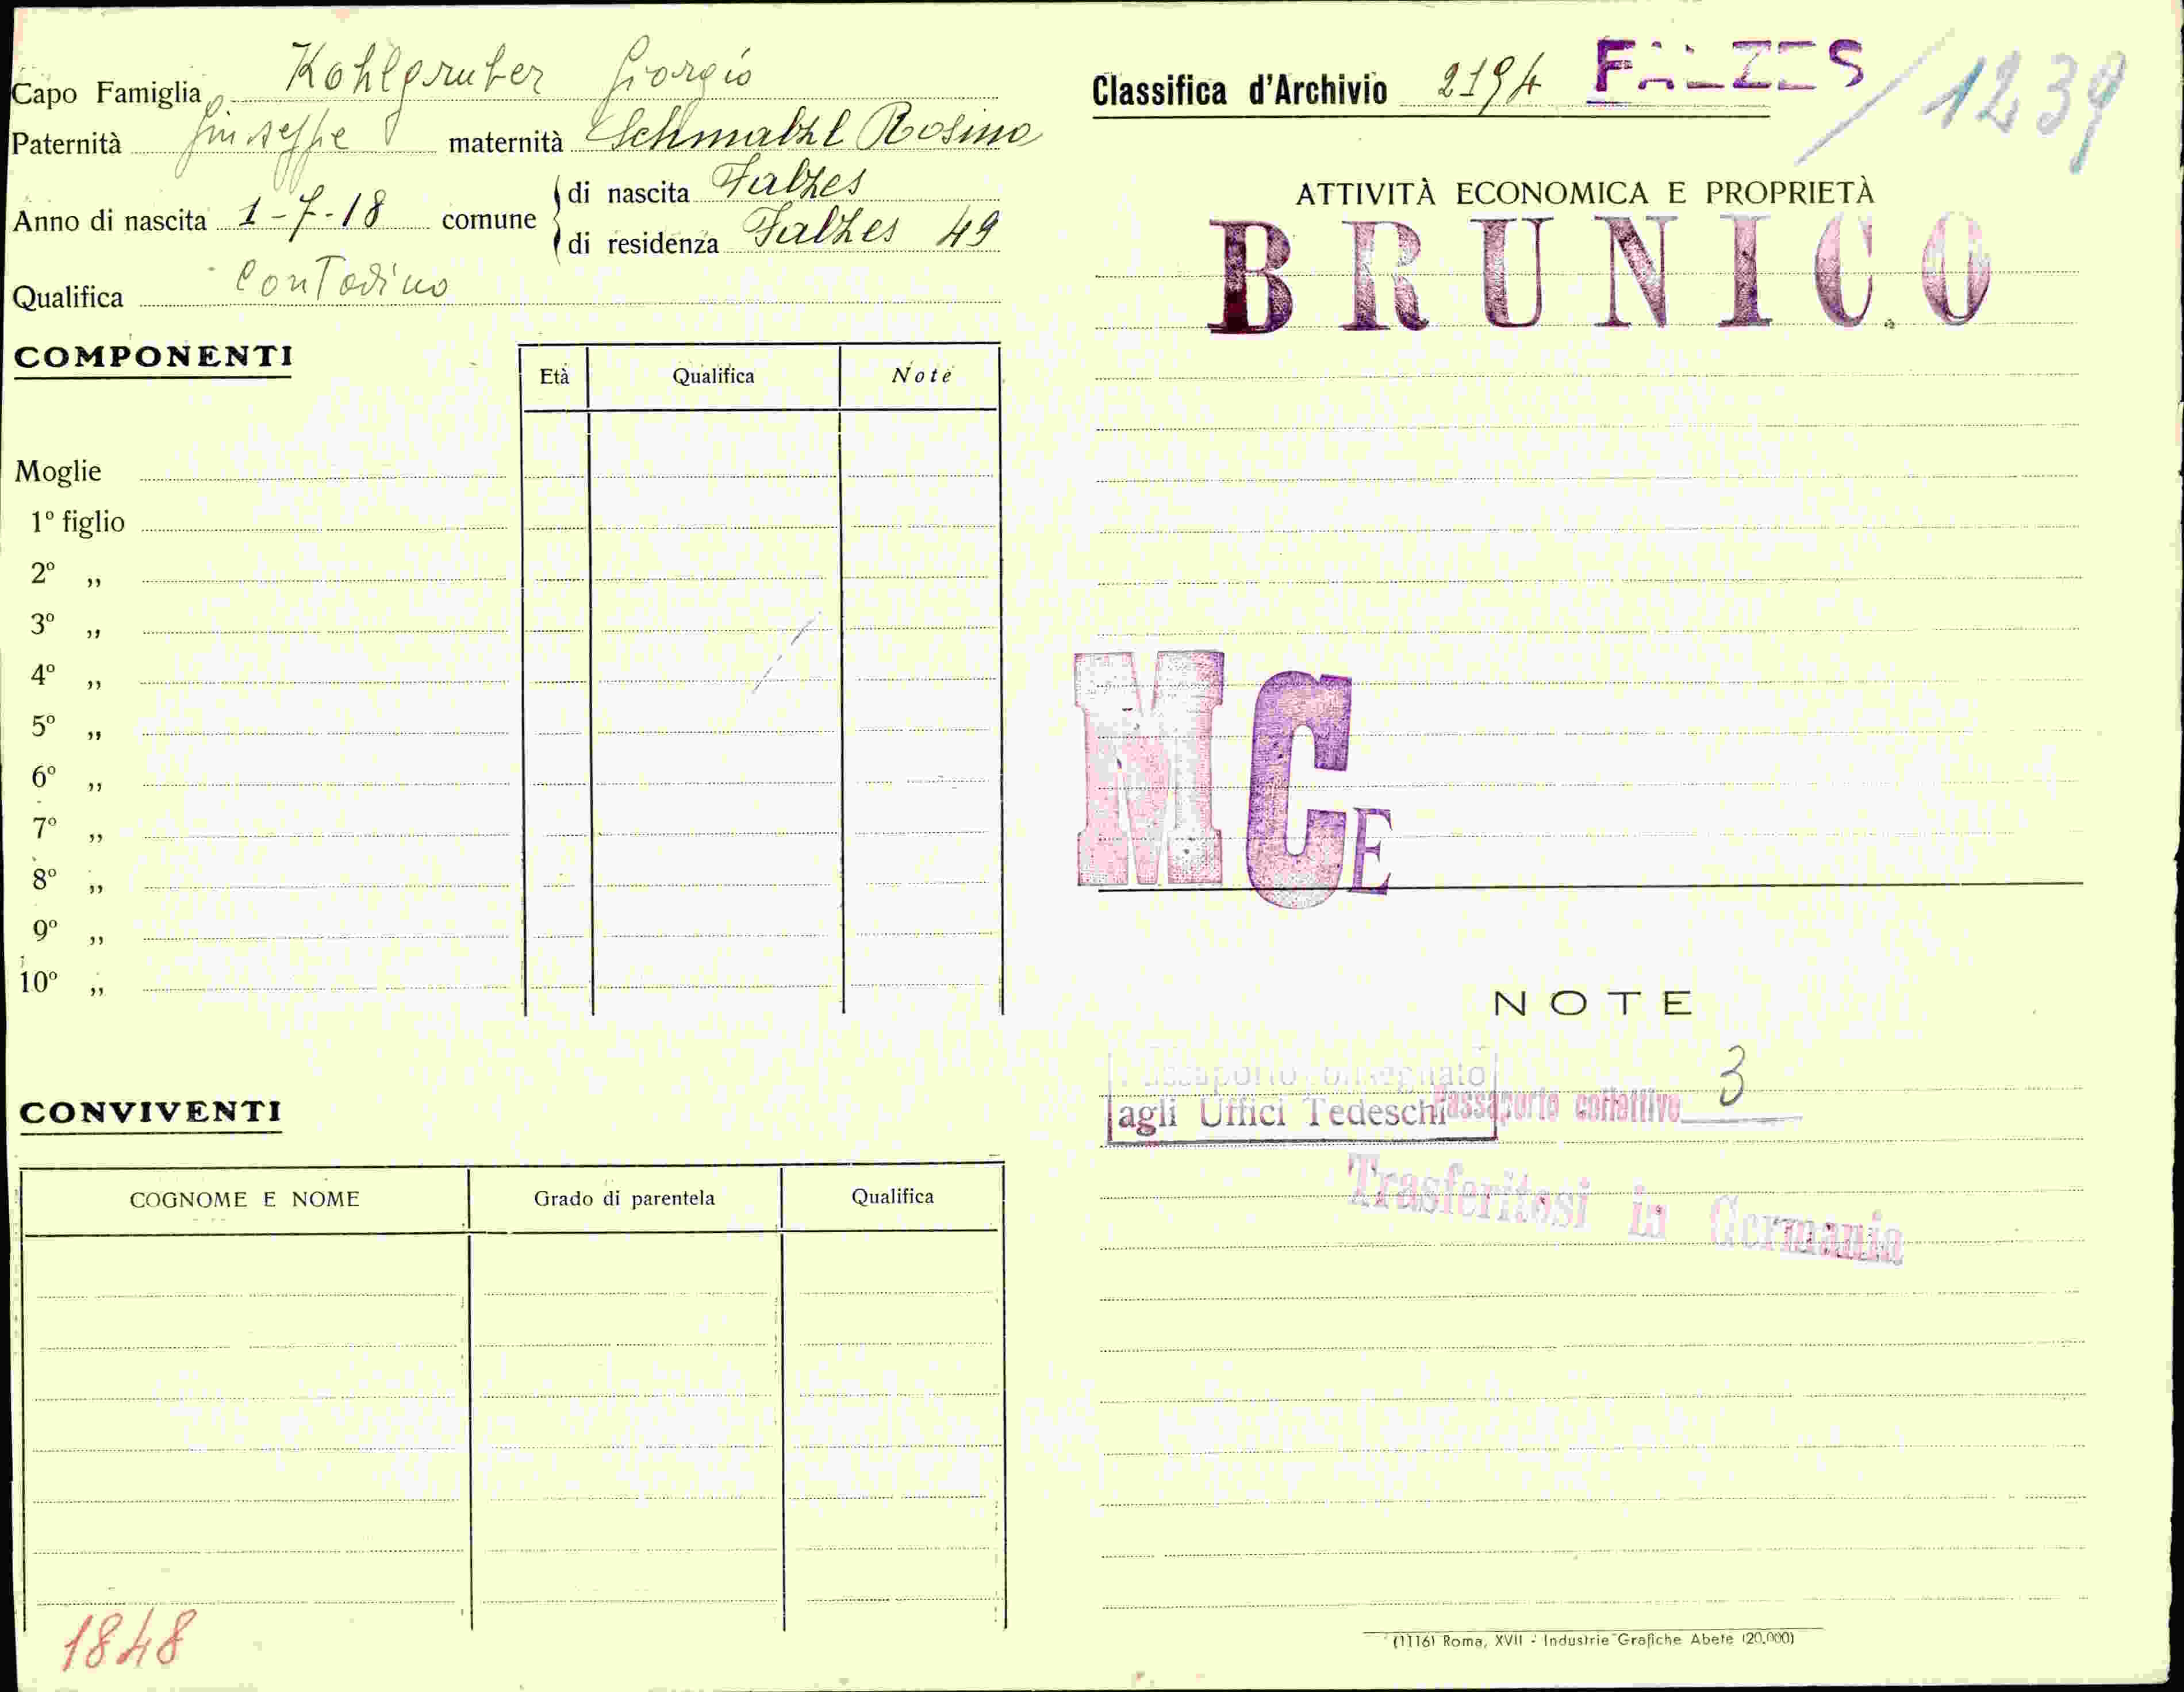 Capo Famiglia Kohlgruber Giorgio
Paternità Giuseppe maternità Schmalzl Rosina
Anno di nascita 1-7-18 comune
di nascita Falzes
di residenza Falzes 49
Qualifica Contadino
COMPONENTI
Età Qualifica Note
Moglie
1º figlio
2º ,,
3º ,,
4º ,,
5º ,,
6º ,,
7º ,,
8º ,,
9º ,,
10º ,,
CONVIVENTI
COGNOME E NOME Grado di parentela Qualifica
1848
Classifica d'Archivio 2194 FALZES / 1239
ATTIVITÀ ECONOMICA E PROPRIETÀ
BRUNICO
M C E
NOTE
agli Uffici Tedeschi Passaporto collettivo 3
Trasferitosi in Germania
(1116) Roma, XVII - Industrie Grafiche Abete (20.000)